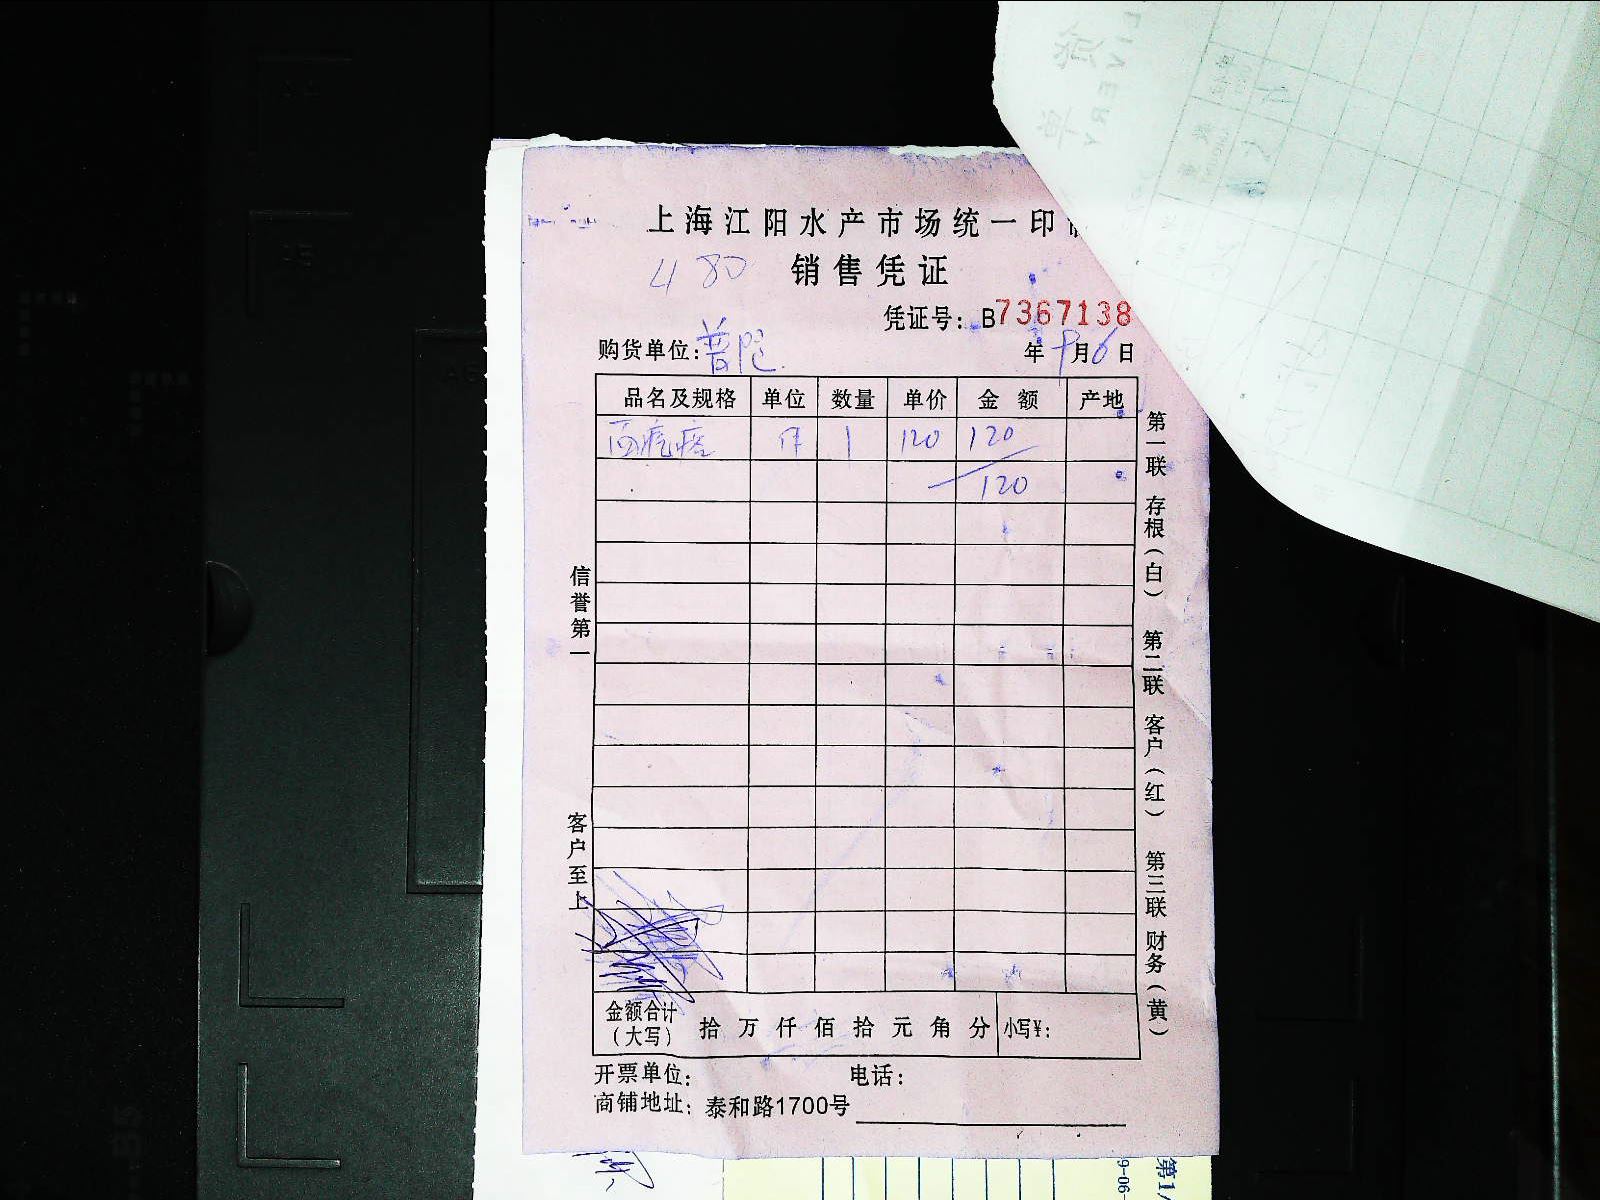 上海江阳水产市场统一印
480 销售凭证
凭证号: B7367138
购货单位: 普陀 年 9月6日
品名及规格 单位 数量 单价 金额 产地
面疙瘩 件 1 120 120
120
信誉第一
客户至上
第一联 存根(白) 第二联 客户(红) 第三联 财务(黄)
金额合计(大写) 拾 万 仟 佰 拾 元 角 分 小写¥:
开票单位: 电话:
商铺地址: 泰和路1700号